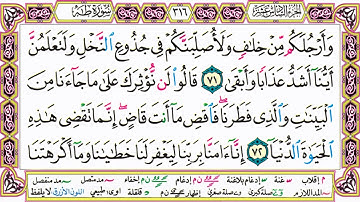 سُورَةُ طٰهٰ ٣١٦ الجزء السادس عشر
وَأَرْجُلَكُم مِّنْ خِلَٰفٍ وَلَأُصَلِّبَنَّكُمْ فِي جُذُوعِ ٱلنَّخْلِ وَلَتَعْلَمُنَّ
أَيُّنَآ أَشَدُّ عَذَابًا وَأَبْقَىٰ ٧١ قَالُوا۟ لَن نُّؤْثِرَكَ عَلَىٰ مَا جَآءَنَا مِنَ
ٱلْبَيِّنَٰتِ وَٱلَّذِي فَطَرَنَا فَٱقْضِ مَآ أَنتَ قَاضٍ إِنَّمَا تَقْضِي هَٰذِهِ
ٱلْحَيَوٰةَ ٱلدُّنْيَآ ٧٢ إِنَّآ ءَامَنَّا بِرَبِّنَا لِيَغْفِرَ لَنَا خَطَٰيَٰنَا وَمَآ أَكْرَهْتَنَا